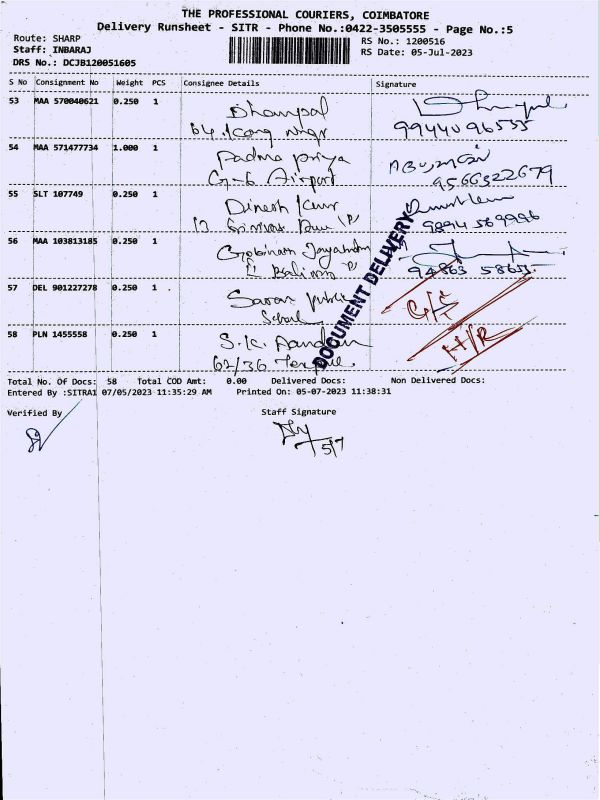 THE PROFESSIONAL COURIERS, COIMBATORE
Delivery Runsheet - SITR - Phone No.:0422-3505555 - Page No.:5
Route: SHARP
Staff: INBARAJ
DRS No.: DCJB120051605
RS No.: 1200516
RS Date: 05-Jul-2023
S No Consignment No Weight PCS Consignee Details Signature
53 MAA 570040621 0.250 1 Dhanpal
64, Kong Ngr
99440 96535
54 MAA 571477734 1.000 1 Padma Priya
G-6 Airport
9566322679
55 SLT 107749 0.250 1 Dinesh Kumar
13
9894 569996
56 MAA 103813185 0.250 1 Gobinath
94863 58655
57 DEL 901227278 0.250 1 Saran Public
School
58 PLN 1455558 0.250 1 S.K. Anandan
62/36
H/R
DOCUMENT DELIVERY
Total No. Of Docs: 58 Total COD Amt: 0.00 Delivered Docs: Non Delivered Docs:
Entered By :SITRA1 07/05/2023 11:35:29 AM Printed On: 05-07-2023 11:38:31
Verified By Staff Signature
5/7